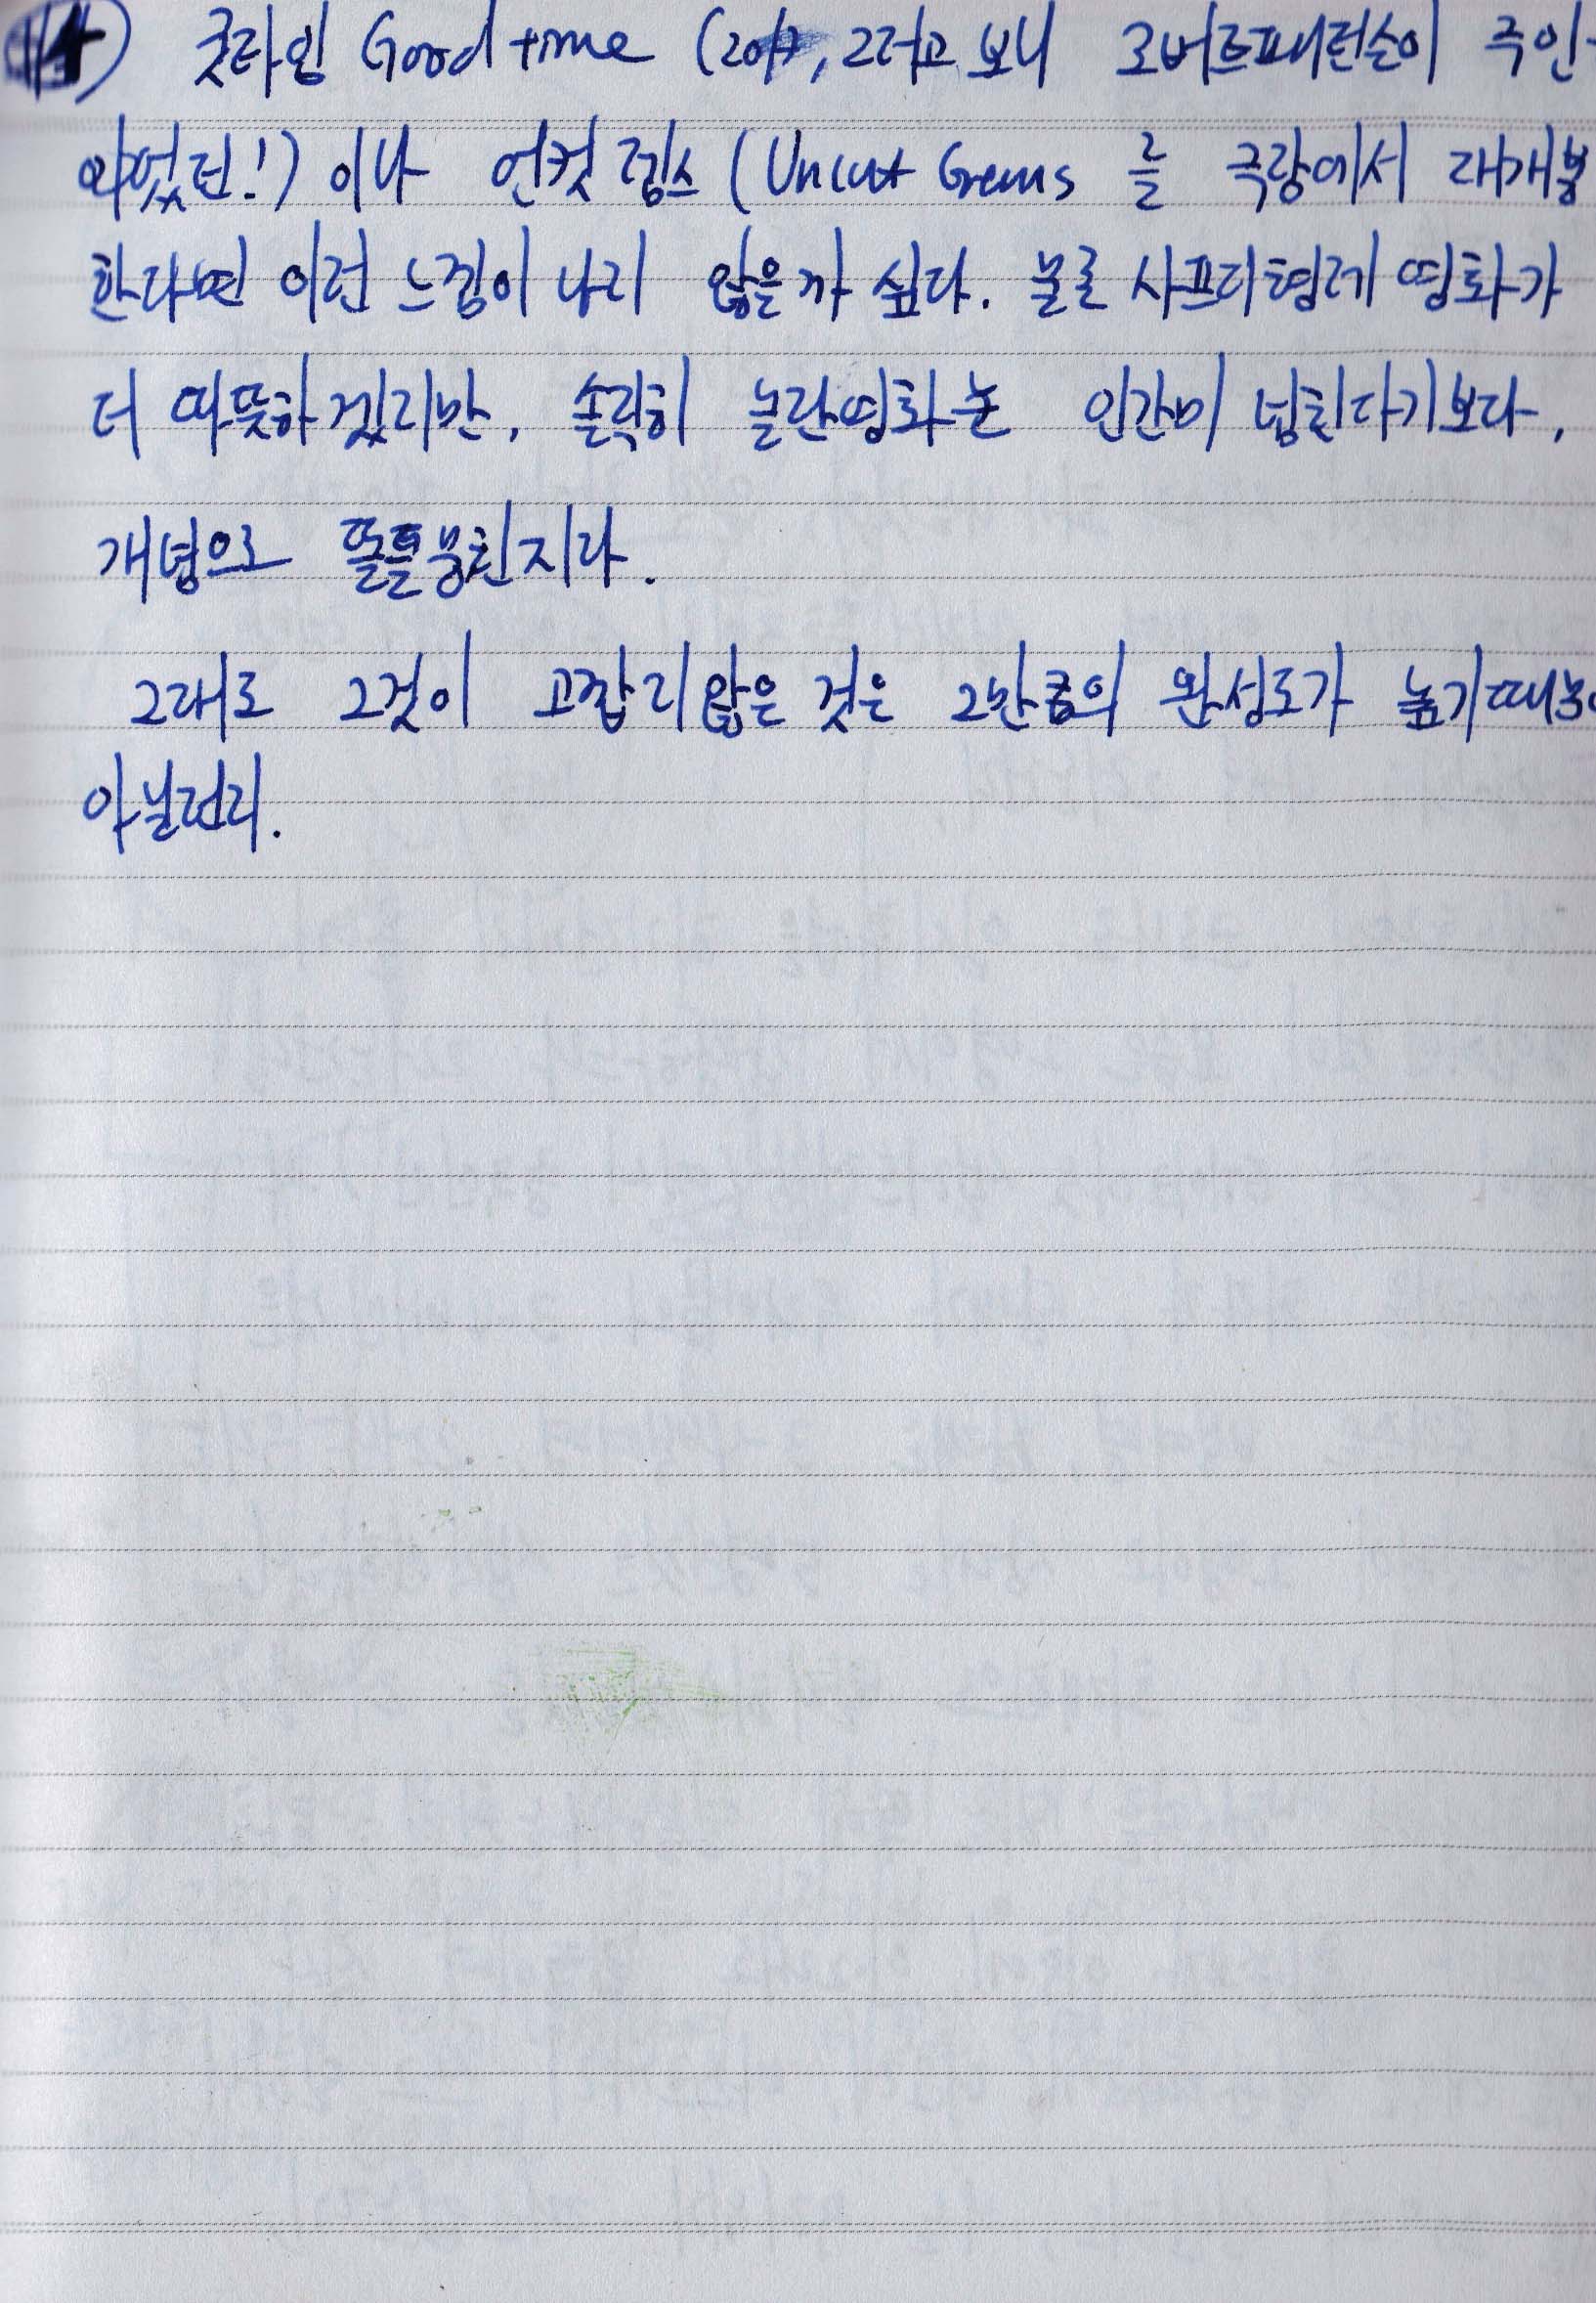 굿타임 Good time (2017, 그러고 보니 로버트패틴슨이 주인
이었던!) 이나 언컷 젬스 (Uncut Gems 를 극장에서 재개봉
한다면 이런 느낌이 나지 않을까 싶다. 물론 사프디형제 영화가
더 따뜻하겠지만, 솔직히 놀란영화는 인간미 넘친다기보다,
개념으로 똘똘뭉친지라.
그래도 그것이 고깝지않은 것은 그만큼의 완성도가 높기때문
아닐런지.